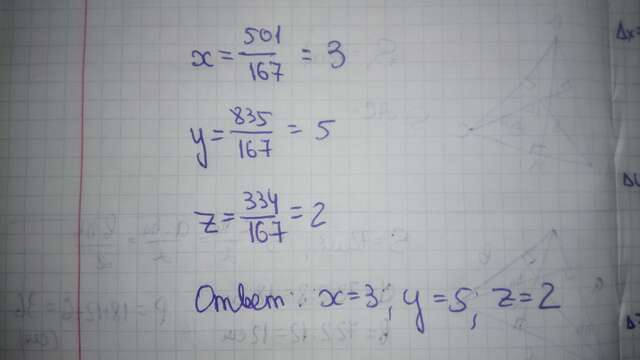 x = 501/167 = 3
y = 835/167 = 5
z = 334/167 = 2
Ответ: x=3; y=5; z=2